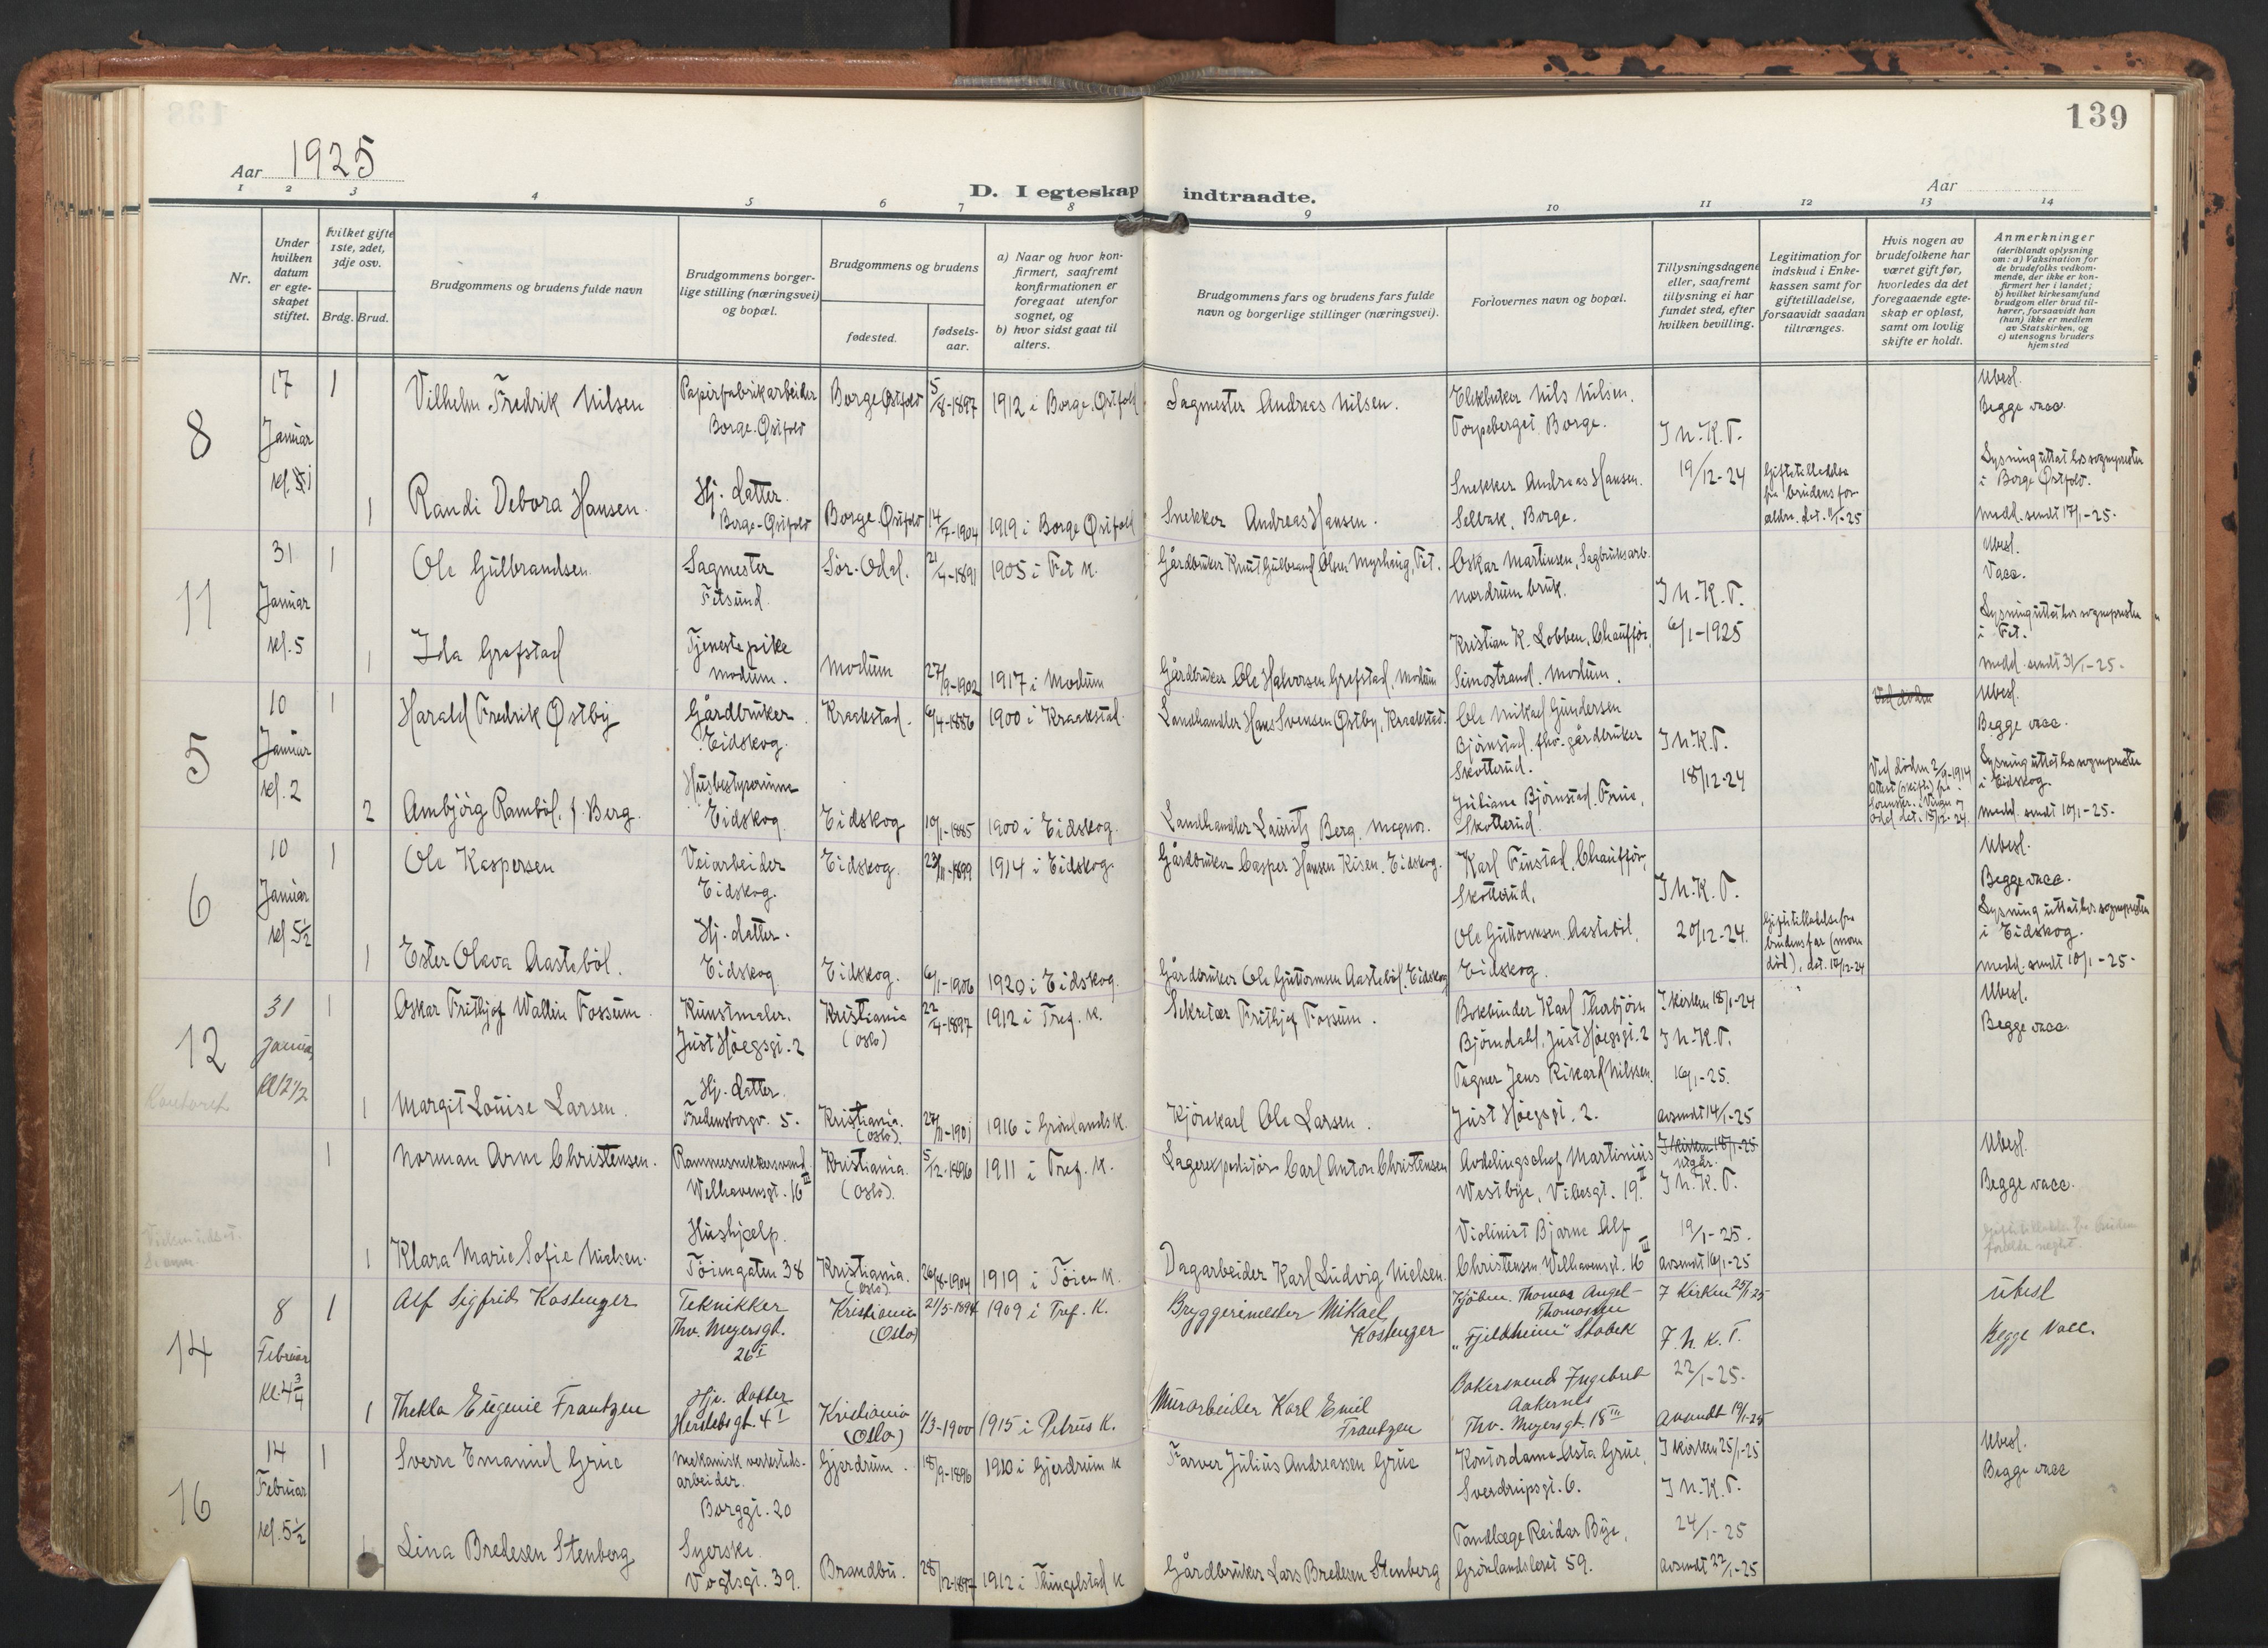 139
Aar 1925
D. I egteskap indtraadte.
Aar
1 2 3 4 5 6 7 8 9 10 11 12 13 14
Nr.
Under hvilken datum er egteskapet stiftet.
hvilket gifte 1ste, 2det, 3dje osv.
Brdg. Brud.
Brudgommens og brudens fulde navn
Brudgommens borgerlige stilling (næringsvei) og bopæl.
Brudgommens og brudens
fødested.
fødselsaar.
a) Naar og hvor konfirmert, saafremt konfirmationen er foregaat utenfor sognet, og
b) hvor sidst gaat til alters.
Brudgommens fars og brudens fars fulde navn og borgerlige stillinger (næringsvei).
Forlovernes navn og bopæl.
Tillysningsdagene eller, saafremt tillysning ei har fundet sted, efter hvilken bevilling.
Legitimation for indskud i Enkekassen samt for giftetilladelse, forsaavidt saadan tiltrænges.
Hvis nogen av brudefolkene har været gift før, hvorledes da det foregaaende egteskap er opløst, samt om lovlig skifte er holdt.
Anmerkninger
(deriblandt oplysning om: a) Vaksination for de brudefolks vedkommende, der ikke er konfirmert her i landet;
b) hvilket kirkesamfund brudgom eller brud tilhører, forsaavidt han (hun) ikke er medlem av Statskirken, og
c) utensogns bruders hjemsted
8
17 Januar
1 Vilhelm Fredrik Nilsen
Papirfabrikarbeider Borge Østfold
Borge Østfold 5/8-1897 1912 i Borge, Østfold
Sagmester Andreas Nilsen.
Nils Nilsen. Torpeberget. Borge.
I N.K.T. 19/12-24
Ubesl. Begge vacc.
1 Randi Debora Hansen.
Hj. datter. Borge-Østfold
Borge Østfold 14/7-1904 1919 i Borge Østfold
Snekker Andreas Hansen.
Snekker Andreas Hansen. Selbak, Borge.
Giftetilladelse fra brudens forældre. dat. 11/1-25
Lysning uttat hos sogneprsten i Borge Østfold. medd. sendt 17/1-25.
11
31 Januar kl. 5
1 Ole Gulbrandsen.
Sagmester Fetsund.
Sør-Odal. 21/4-1891 1905 i Fet k.
Gårdbruker Knut Gulbrand Olsen Myrhaug, Fet.
Oskar Martinsen, Sagbruksarb. Nordrum bruk.
I N.K.T. 6/1-1925
Ubesl. Vacc.
1 Ida Grefstad
Tjenestepike Modum.
Modum 27/9-1902 1917 i Modum
Gårdbruker Ole Halvorsen Grefstad, Modum
Kristian K. Lobben, Chauffør, Simostrand. Modum.
Lysning uttat hos sogneprsten i Fet. medd. sendt 31/1-25.
5
10 Januar kl. 2
1 Harald Fredrik Østby
Gårdbruker Eidskog.
Kraakstad. 6/4-1886 1900 i Kraakstad.
Landhandler Hans Svensen Østby, Kraakstad.
Ole Mikael Gundersen Bjørnstad. fhv. gårdbruker Skotterud.
I N.K.T. 18/12-24
Ubesl. Begge vacc.
2 Ambjörg Ramböl, f. Berg.
Husbestyrerinne Eidskog.
Eidskog 10/1-1885 1900 i Eidskog.
Landhandler Lauritz Berg. Magnor.
Juliane Bjørnstad. Frue, Skotterud.
Ved døden 2/9-1914 Attest (skifte) fra Sorenskr. i Vinger og Odal dat. 15/12-24.
Lysning uttat hos sogneprsten i Eidskog. medd. sendt 10/1-25.
6
10 Januar kl 5½
1 Ole Kaspersen
Veiarbeider Eidskog.
Eidskog. 23/11-1899 1914 i Eidskog.
Gårdbruker Casper Hansen Kisen. Eidskog.
Karl Finstad, Chauffør, Skotterud.
I N.K.T. 20/12-24.
Ubesl. Begge vacc.
1 Ester Oleva Aasteböl.
Hj. datter. Eidskog
Eidskog. 6/1-1906 1920 i Eidskog.
Gårdbruker Ole Guttormsen Aasteböl. Eidskog
Ole Guttormsen Aasteböl, Eidskog.
Giftetilladelse fra brudens far (moren død), dat. 15/12-24
Lysning uttat hos sogneprsten i Eidskog. medd. sendt 10/1-25.
12
31 Januar Kl 12½
1 Oskar Frithjof Wallin Fossum.
Kunstmaler. Just Høegsgt. 2
Kristiania (Oslo) 22/4-1897 1912 i Tref. k.
Sekretær Frithjof Fossum.
Bokbinder Karl Thorbjørn Bjørndahl, Just Høegsgt. 2
I kirken 18/1-24 I N.K.T. 16/1-25.
Ubesl. Begge vacc.
1 Margit Louise Larsen.
Hj. datter. Fredensborgv. 5.
Kristiania. (Oslo). 27/11-1901 1916 i Grønlands k.
Kjørekarl Ole Larsen.
Tegner Jens Rikard Nilssen. Just Høegsgt. 2.
avsendt 14/1-25
1 Norman Arne Christensen.
Rammesnekkersvend. Welhavensgt. 16 III
Kristiania. (Oslo). 5/12-1896 1911 i Tref. k.
Lagerexpeditør Carl Anton Christensen
Avdelingschef Martinius Westbye, Vibesgt. 19 II
I kirken 18/1-25 utgår. I N.K.T. 19/1-25.
Ubesl. Begge vacc.
1 Klara Marie Sofie Nielsen.
Hushjælp. Tøiengaten 38
Kristiania. (Oslo). 26/8-1904 1919 i Tøien k.
Dagarbeider Karl Ludvig Nielsen.
Violinist Bjarne Alf Christensen Welhavensgt. 16 III
avsendt 16/1-25
14
8 Februar Kl. 4¾
1 Alf Sigfrid Kostenzer
Teknikker Thv. Meyersgt. 26 I
Kristiania (Oslo) 21/5-1894 1909 i Tref. K.
Bryggerimester Mikael Kostenzer
Kjøbm. Thomas Angel-Thomassen "Fjeldheim" Stabek
I Kirken 25/1-25 I N.K.T. 22/1-25.
Ubesl Begge Vacc.
1 Thekla Eugenie Frantzen
Hje. datter Herslebsgt. 4 I
Kristiania (Oslo) 1/3-1900 1915 i Petrus K.
Murarbeider Karl Emil Frantzen
Bakersvend Ingebret Aakernes Thv. Meyersgt. 18 III
Avsendt 19/1-25
16
14 Februar kl. 5½
1 Sverre Emanuel Grue
Mekanisk verkstedsarbeider. Borggt. 20
Gjerdrum. 18/9-1896 1910 i Gjerdrum k
Farver Julius Andreassen Grue
Kontordame Asta Grue, Sverdrupsgt. 6.
I kirken 25/1-25 I N.K.T. 24/1-25
Ubesl. Begge vacc
Lina Bredesen Stenberg
Syerske. Vogtsgt. 39.
Brandbu. 28/12-1897 1912 i Thingelstad k
Gårdbruker Lars Bredesen Stenberg
Tandlæge Reidar Bye, Grønlandsleret 59.
Avsendt 22/1-25